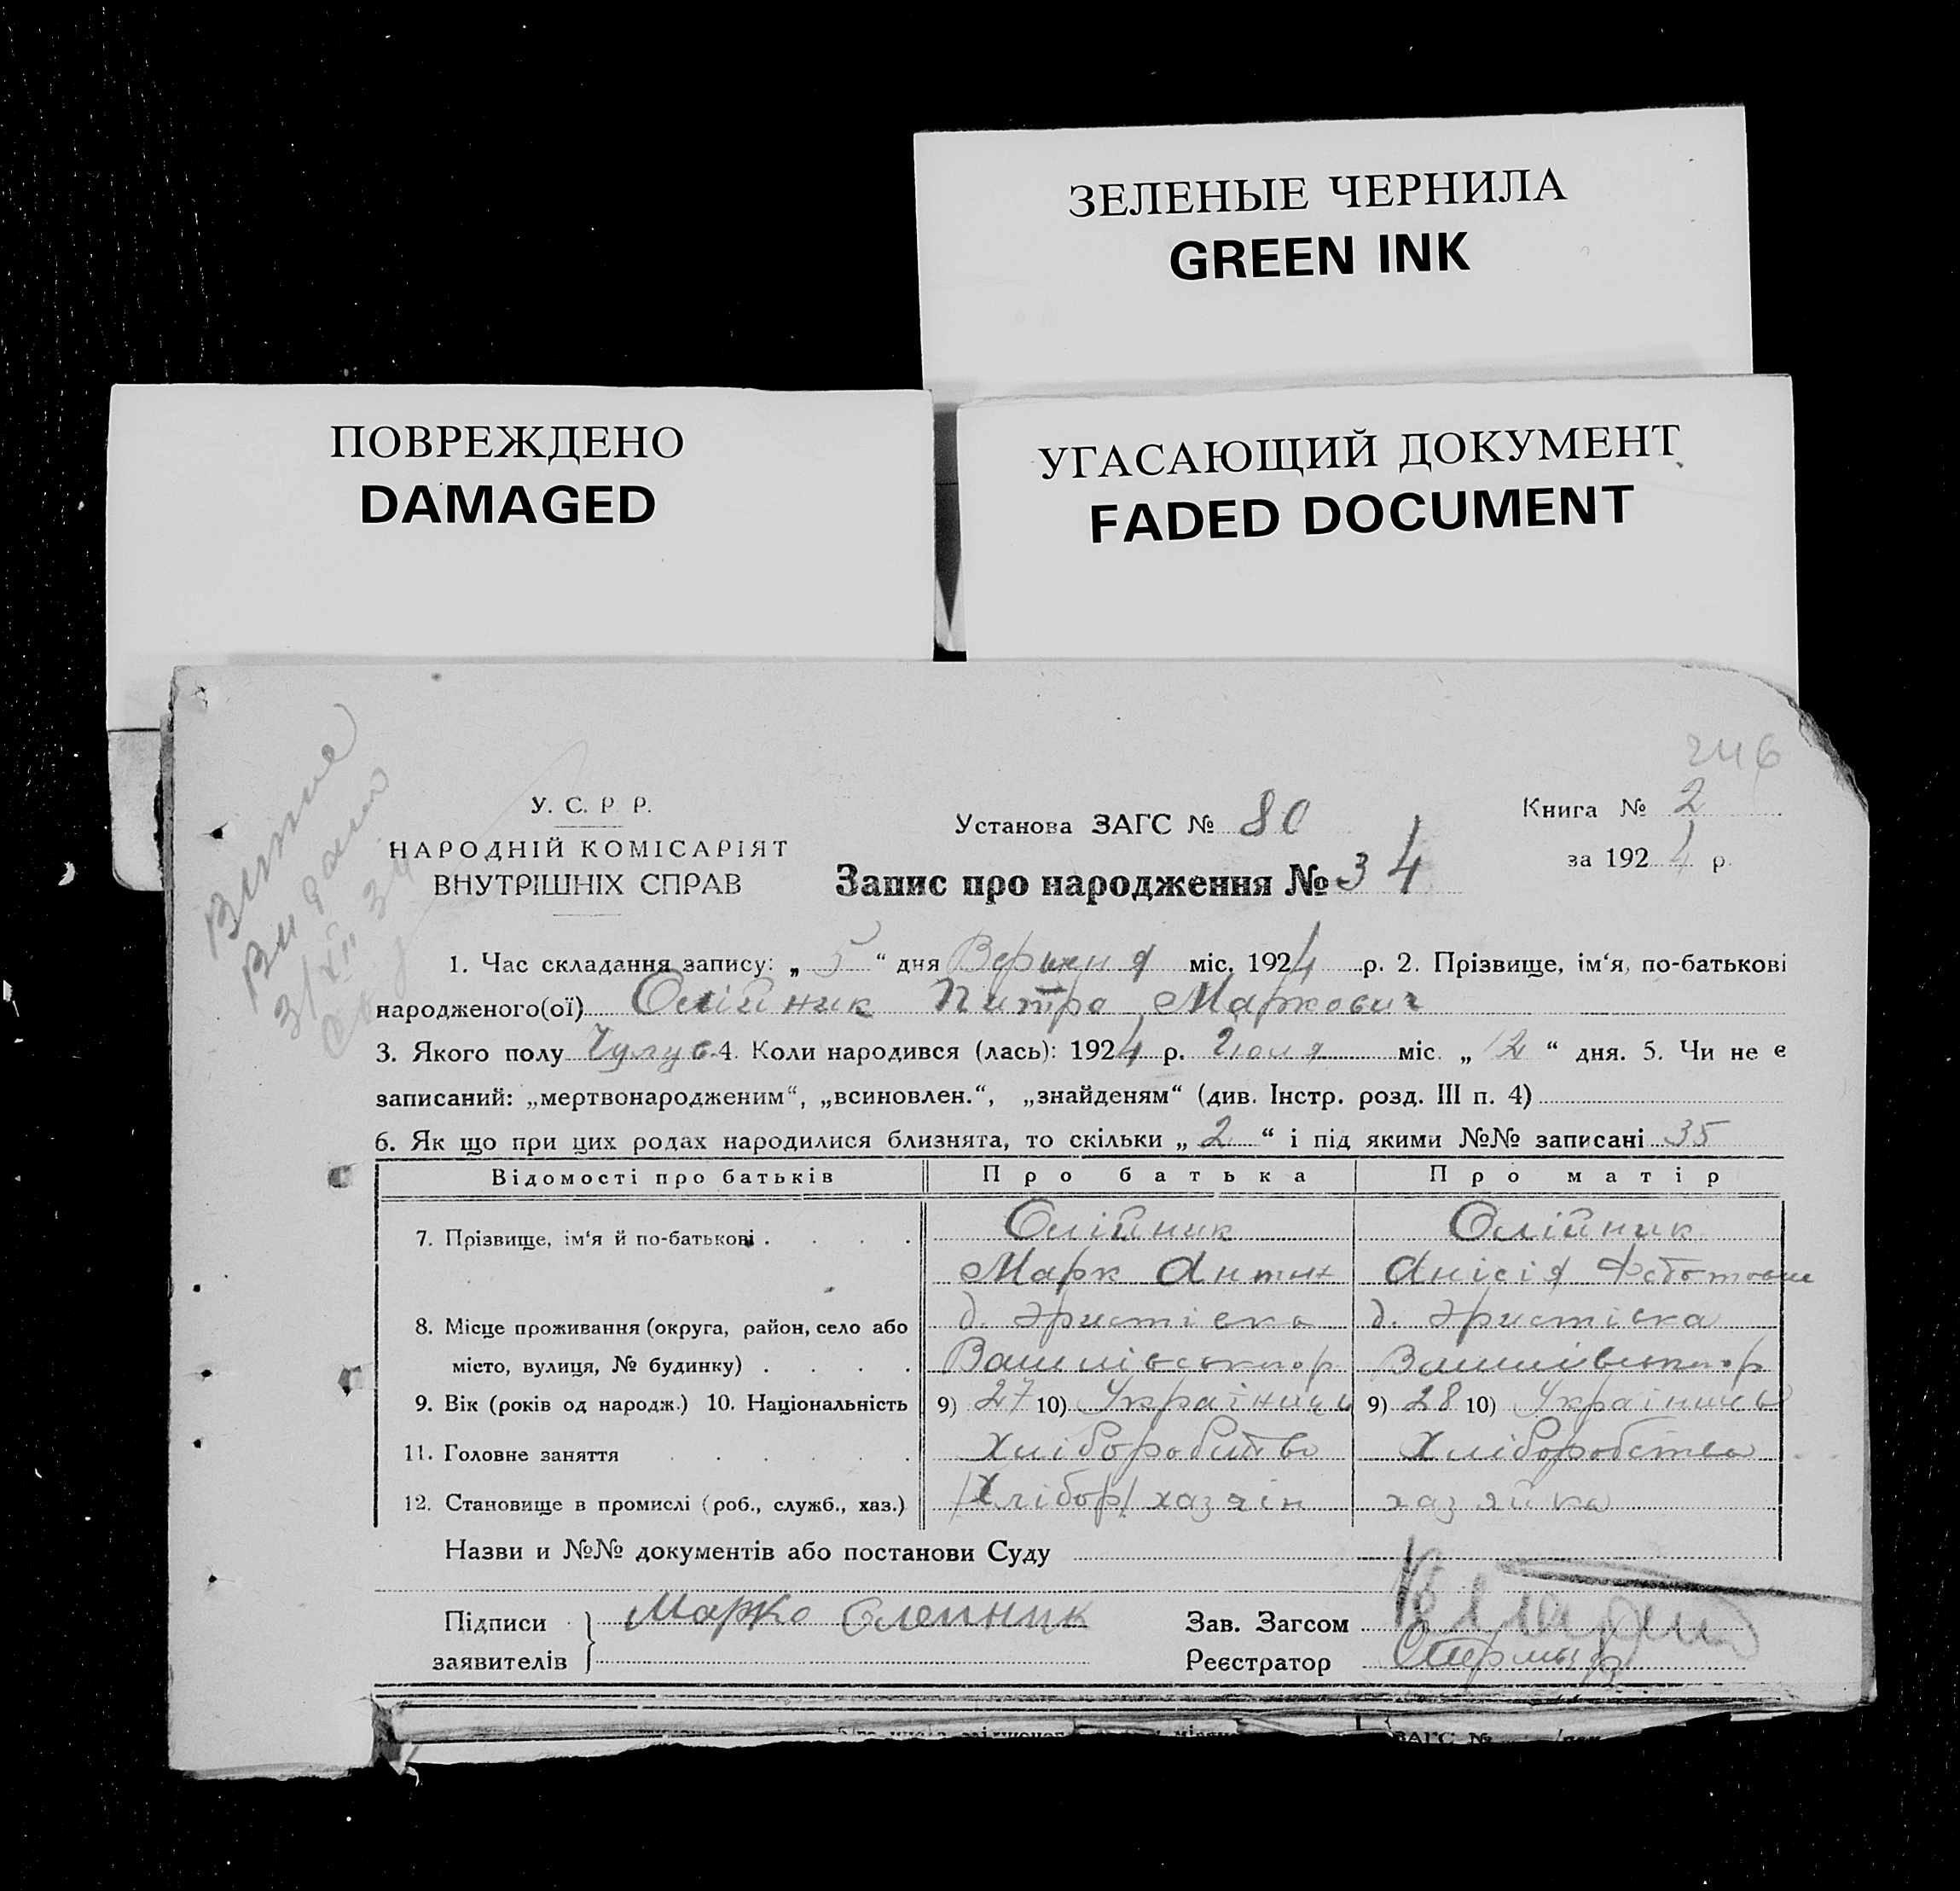 ЗЕЛЕНЫЕ ЧЕРНИЛА
GREEN INK
ПОВРЕЖДЕНО
DAMAGED
УГАСАЮЩИЙ ДОКУМЕНТ
FADED DOCUMENT
246
У. С. Р. Р.
НАРОДНІЙ КОМІСАРІЯТ
ВНУТРІШНІХ СПРАВ
Установа ЗАГС № 80
Запис про народження № 34
Книга № 2
за 1924 р.
Видано
3/XII 34
1. Час складання запису: „ 5 “ дня міс. 1924 р. 2. Прізвище, ім‘я, по-батькові
народженого(ої) Олійник Питро Маркович
3. Якого полу 4. Коли народився (лась): 1924 р. Июля міс. „ 12 “ дня. 5. Чи не є
записаний: „мертвонародженим“, „всиновлен.“, „знайденям“ (див. Інстр. розд. III п. 4)
6. Як що при цих родах народилися близнята, то скільки „ 2 “ і під якими №№ записані 35
Відомості про батьків Про батька Про матір
7. Прізвище, ім‘я й по-батькові Олійник Олійник
Марк Антин Анісія
8. Місце проживання (округа, район, село або д. д.
місто, вулиця, № будинку)
9. Вік (років од народж.) 10. Національність 9) 27 10) Українець 9) 28 10)
11. Головне заняття Хліборобство Хліборобство
12. Становище в промислі (роб., служб., хаз.) /Хлібор/ хазяін хазяйка
Назви и №№ документів або постанови Суду
Підписи Марко Олейник Зав. Загсом
заявителів Реєстратор
ЗАГС №